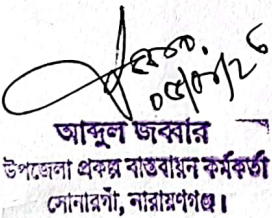 ০৫/০৮/২৬
আব্দুল জব্বার
উপজেলা প্রকল্প বাস্তবায়ন কর্মকর্তা
সোনারগাঁ, নারায়ণগঞ্জ।